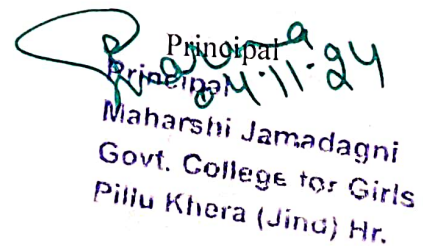 Principal
04.11.24
Principal
Maharshi Jamadagni
Govt. College for Girls
Pillu Khera (Jind) Hr.